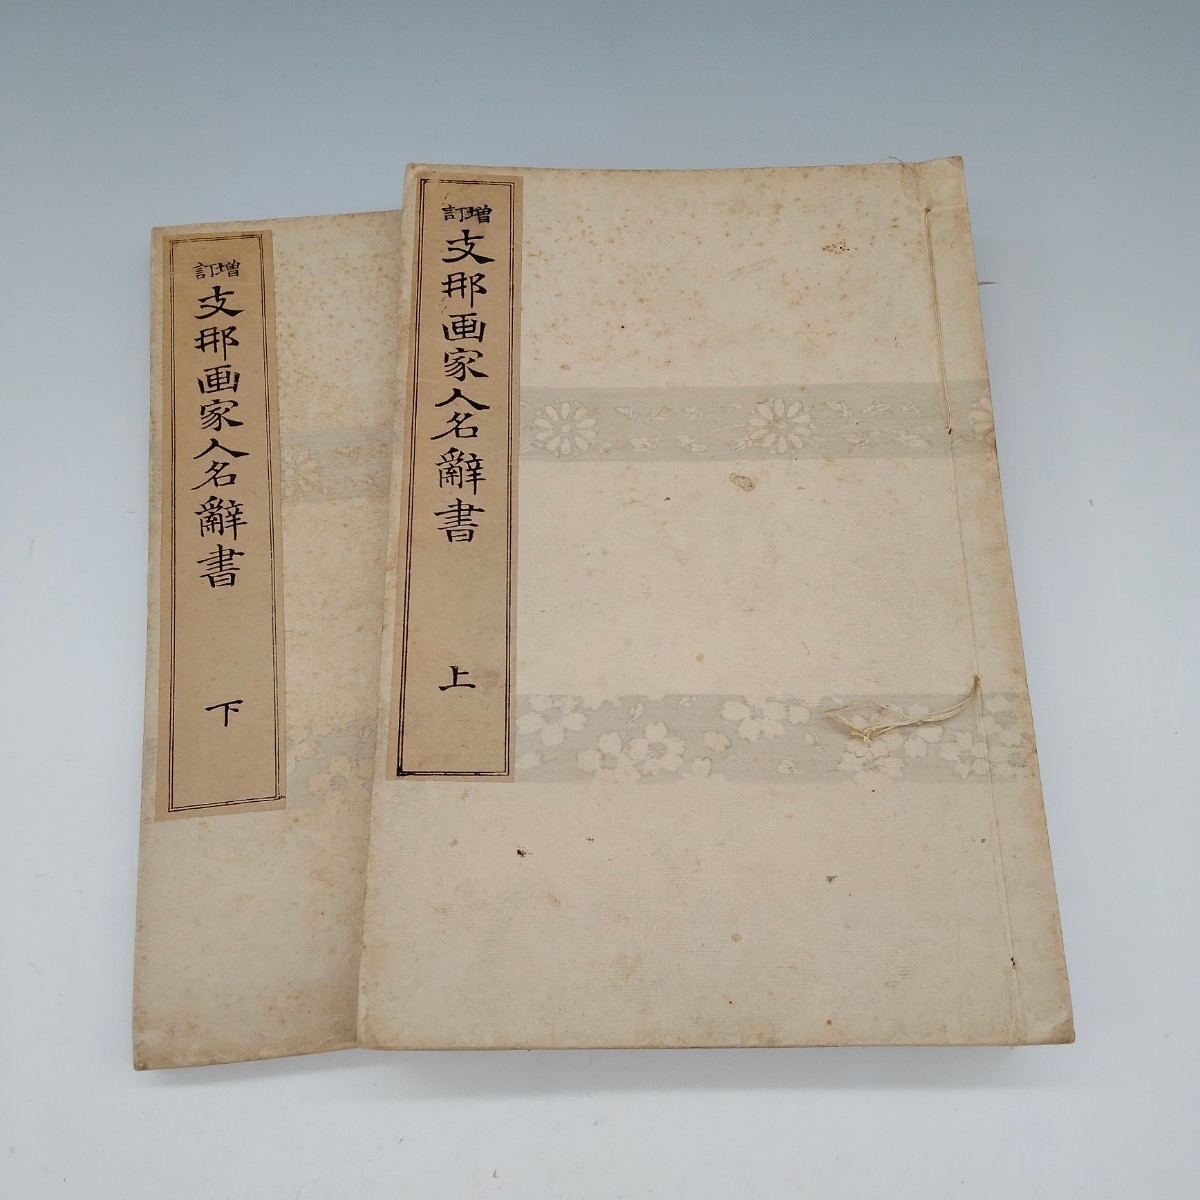 増訂
支那画家人名辭書
上
増訂
支那画家人名辭書
下